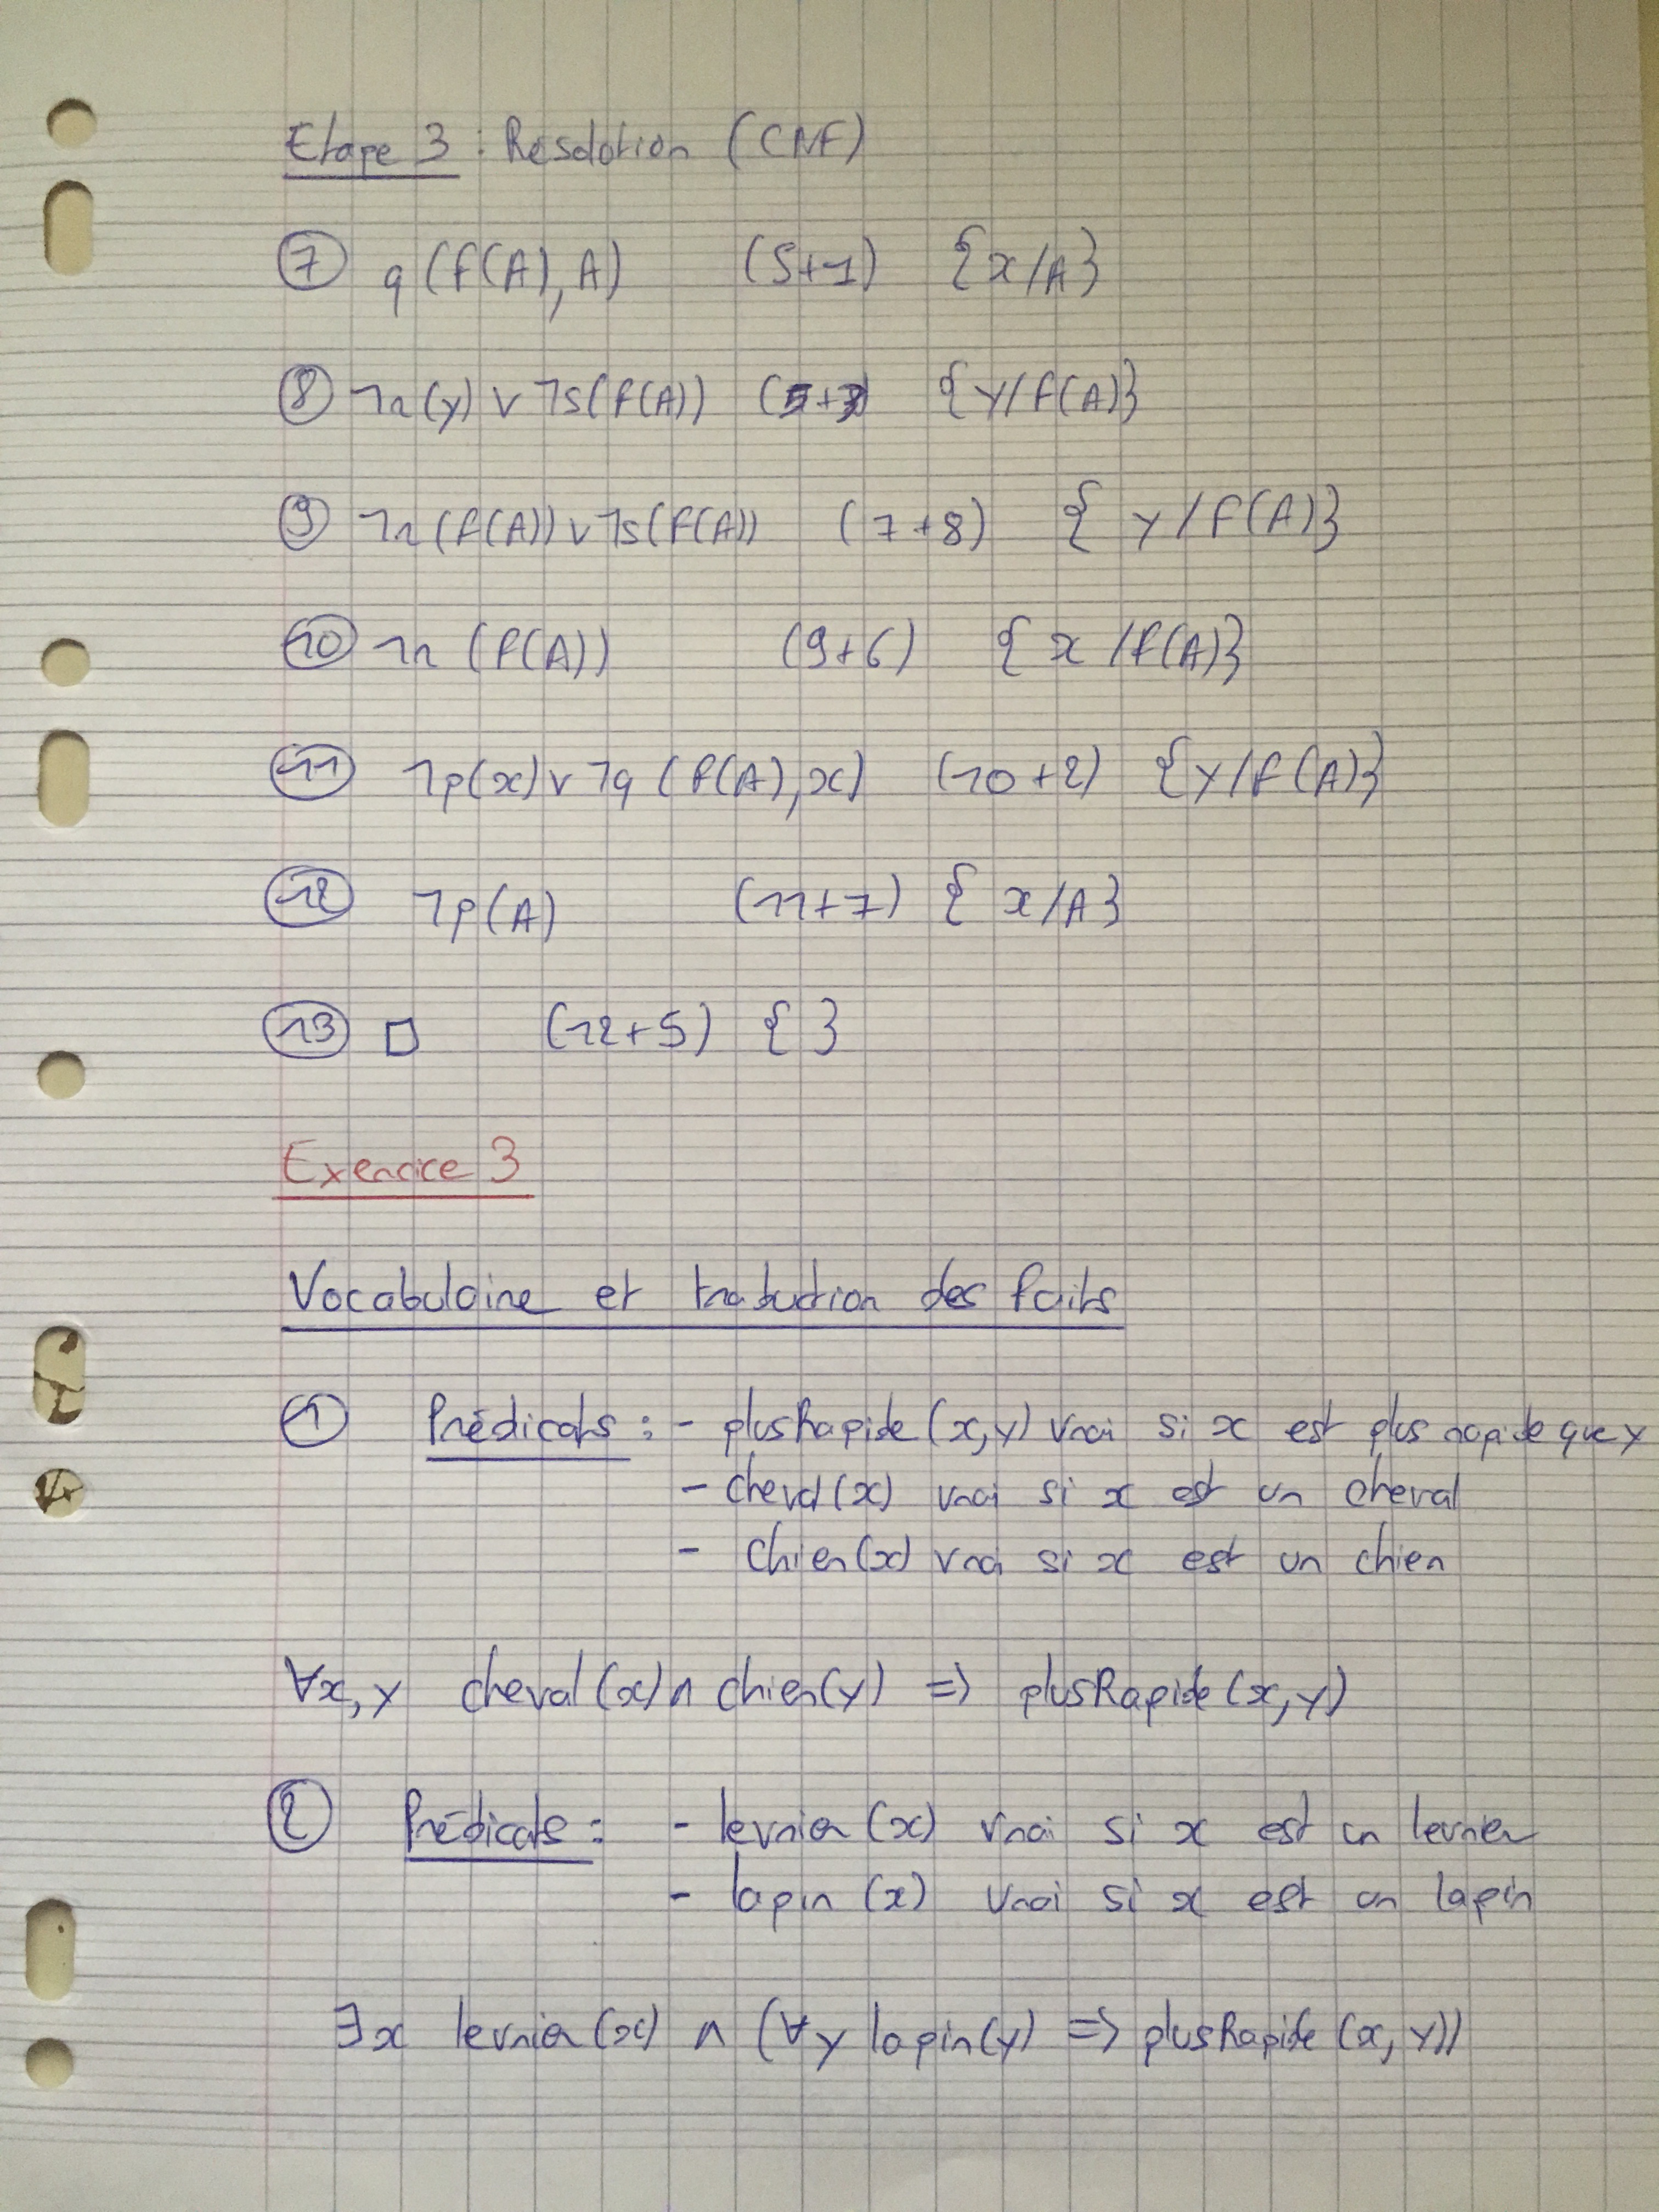 Etape 3 : Résolution (CNF)
⑦ q(f(A), A) (5+1) {x/A}
⑧ ¬r(y) ∨ ¬s(f(A)) {y/f(A)}
⑨ ¬r(f(A)) ∨ ¬s(f(A)) (7+8) {y/f(A)}
⑩ ¬r(f(A)) (9+6) {x/f(A)}
⑪ ¬p(x) ∨ ¬q(f(A), x) (10+2) {y/f(A)}
⑫ ¬p(A) (11+7) {x/A}
⑬ □ (12+5) { }
Exercice 3
Vocabulaire et traduction des faits
① Prédicats : - plusRapide(x,y) vrai si x est plus rapide que y
- cheval(x) vrai si x est un cheval
- chien(x) vrai si x est un chien
∀x,y cheval(x) ∧ chien(y) => plusRapide(x,y)
② Prédicats : - levrier(x) vrai si x est un levrier
- lapin(x) vrai si x est un lapin
∃x levrier(x) ∧ (∀y lapin(y) => plusRapide(x,y))